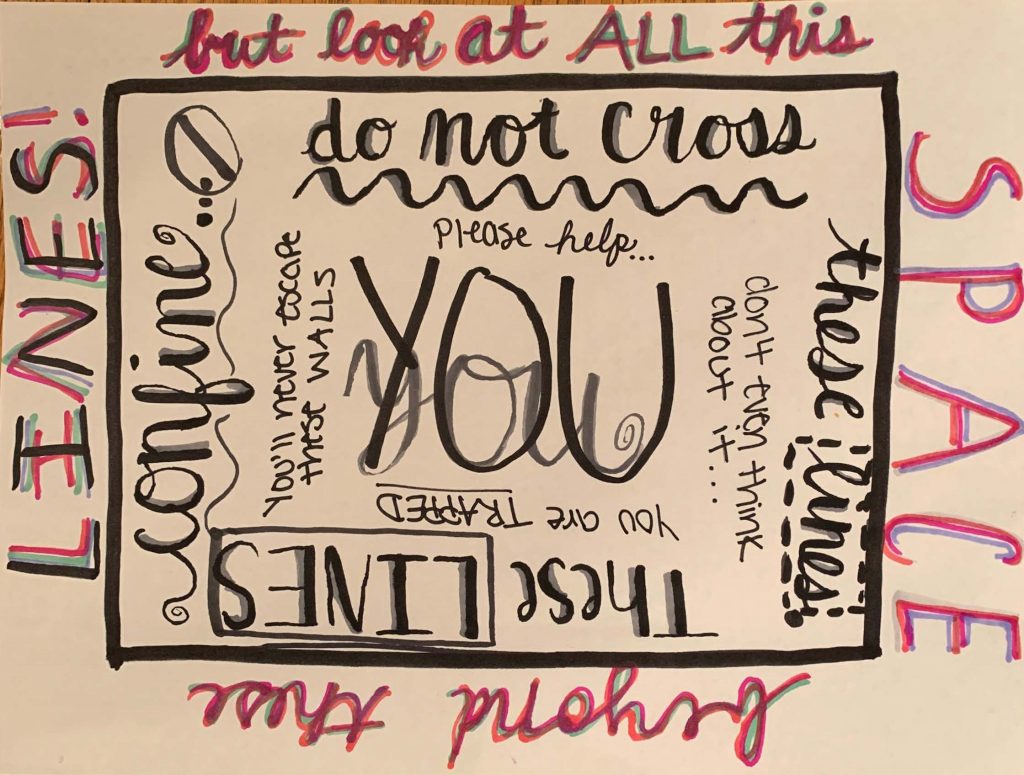 but look at ALL this
SPACE
beyond these
LINES!
do not cross
these lines
These LINES
confine...
Please help...
don't even think
about it...
you are TRAPPED
You'll never escape
these WALLS
YOU
you